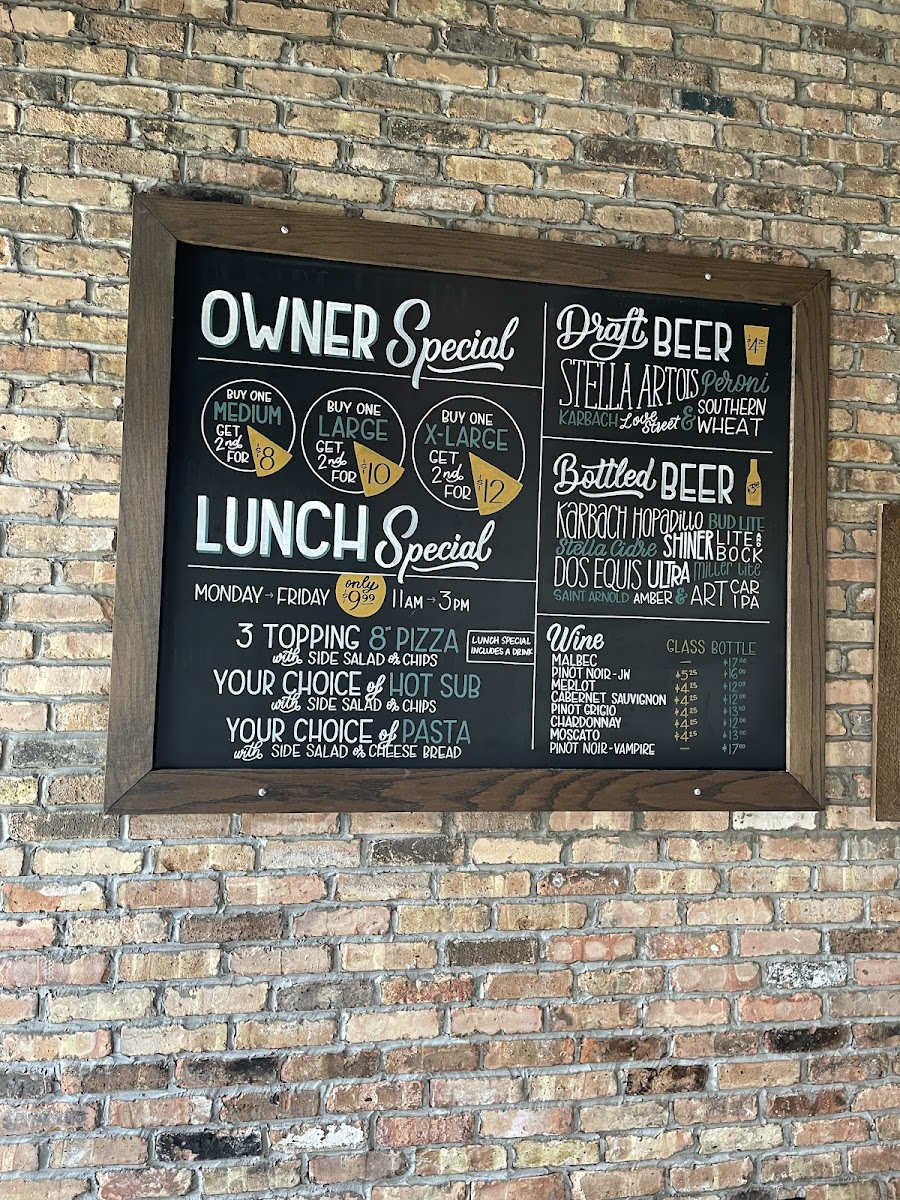 OWNER Special
BUY ONE
MEDIUM
GET
2nd
FOR
$8
BUY ONE
LARGE
GET
2nd
FOR
$10
BUY ONE
X-LARGE
GET
2nd
FOR
$12
LUNCH Special
MONDAY → FRIDAY only $9.99 11AM → 3PM
3 TOPPING 8" PIZZA
with SIDE SALAD or CHIPS
LUNCH SPECIAL
INCLUDES A DRINK
YOUR CHOICE of HOT SUB
with SIDE SALAD or CHIPS
YOUR CHOICE of PASTA
with SIDE SALAD or CHEESE BREAD
Draft BEER $4.25
STELLA ARTOIS Peroni
KARBACH Love Street & SOUTHERN WHEAT
Bottled BEER
KARBACH HOPADILLO BUD LITE
Stella Cidre SHINER LITE AND BOCK
DOS EQUIS ULTRA Miller Lite
SAINT ARNOLD AMBER & ART CAR IPA
Wine GLASS BOTTLE
MALBEC — $17.00
PINOT NOIR-JW $5.25 $16.00
MERLOT $4.25 $12.00
CABERNET SAUVIGNON $4.25 $12.00
PINOT GRIGIO $4.25 $13.50
CHARDONNAY $4.25 $12.00
MOSCATO $4.25 $13.00
PINOT NOIR-VAMPIRE — $17.00